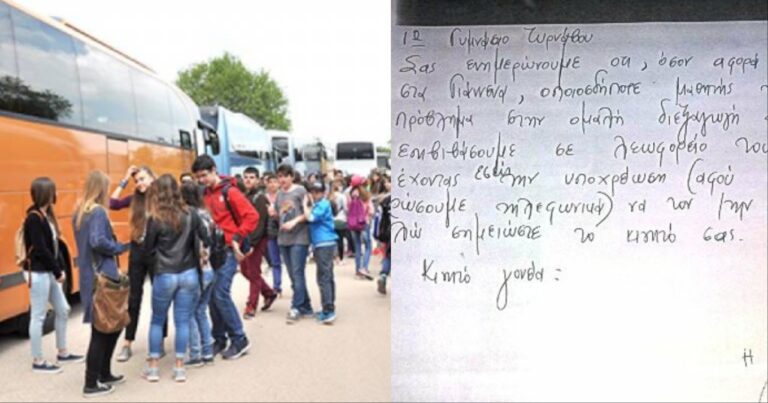 1ο Γυμνάσιο Τυρνάβου
Σας ενημερώνουμε οτι, όσον αφορά
στα Γιάννενα, οποιοσδήποτε μαθητής
πρόβλημα στην ομαλή διεξαγωγή
επιβιβάσουμε σε λεωφορείο του
έχοντας εσείς την υποχρέωση (αφού
ώσουμε τηλεφωνικά) να τον
λώ σημειώστε το κινητό σας.
Κινητό γονέα:
Η